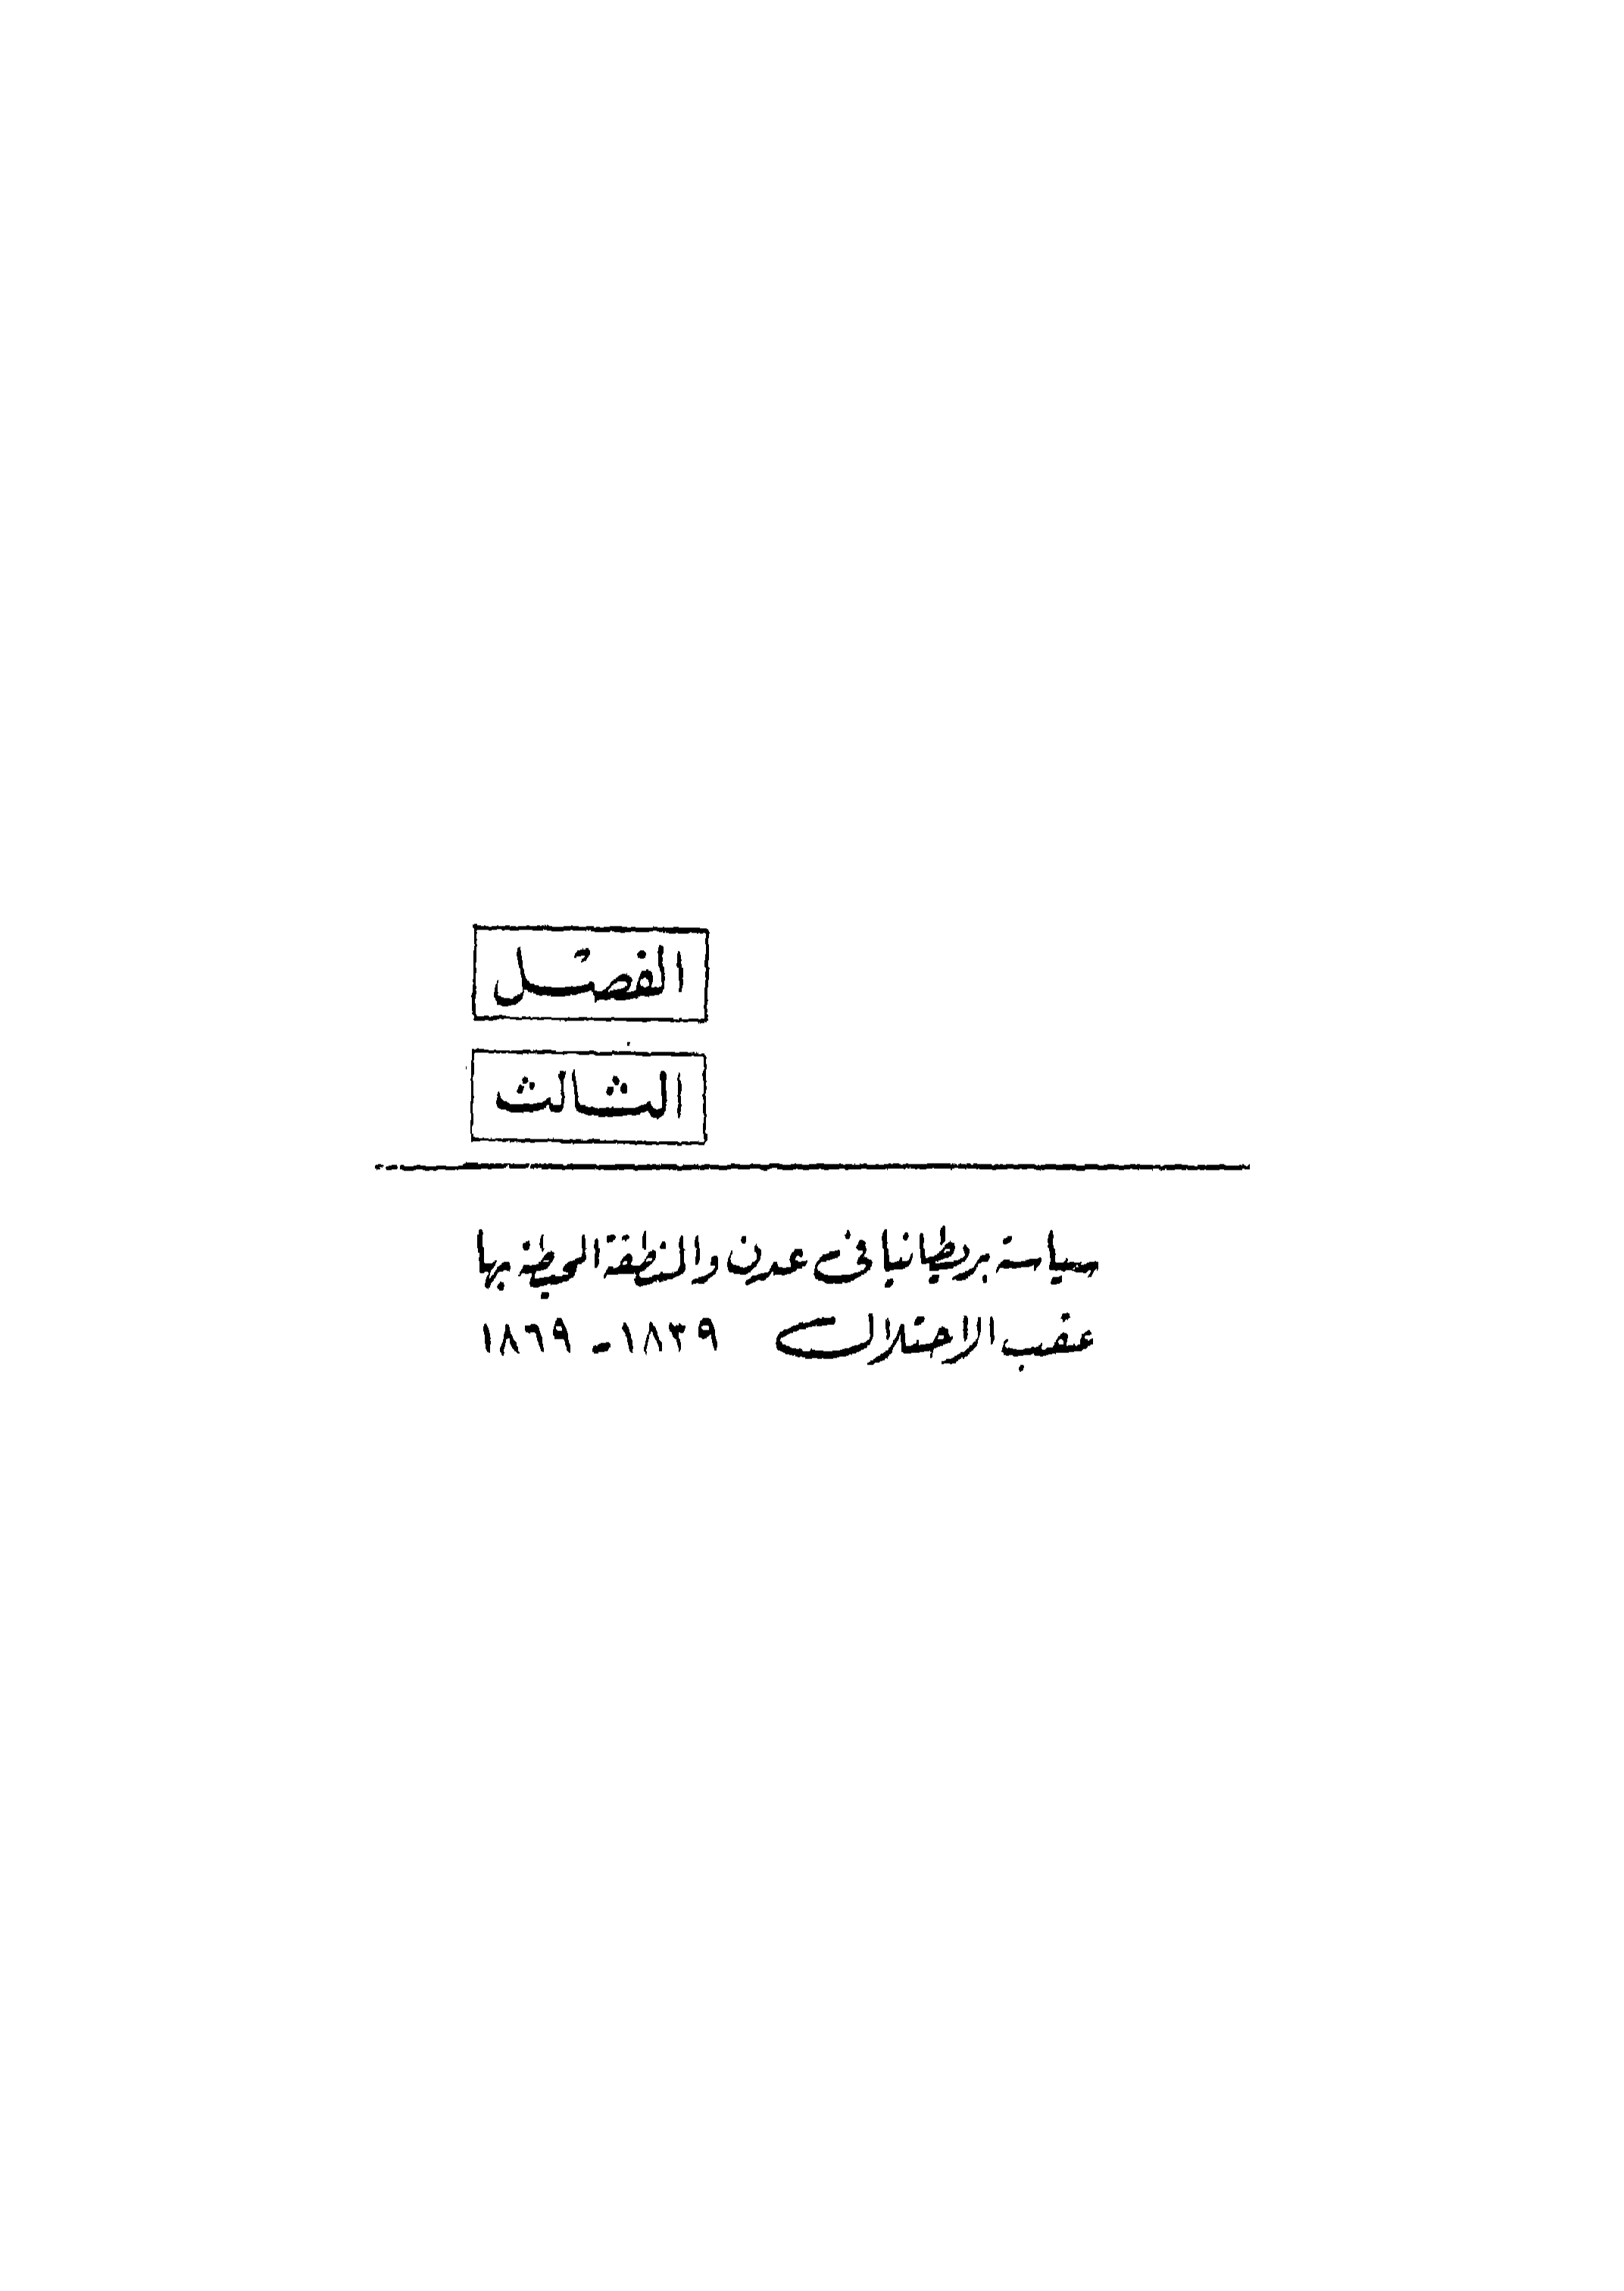 الفصل
الثالث
سياسة بريطانيا فى عدن والمنطقة المحيطة بها
عقب الاحتلال ١٨٣٩ - ١٨٦٩